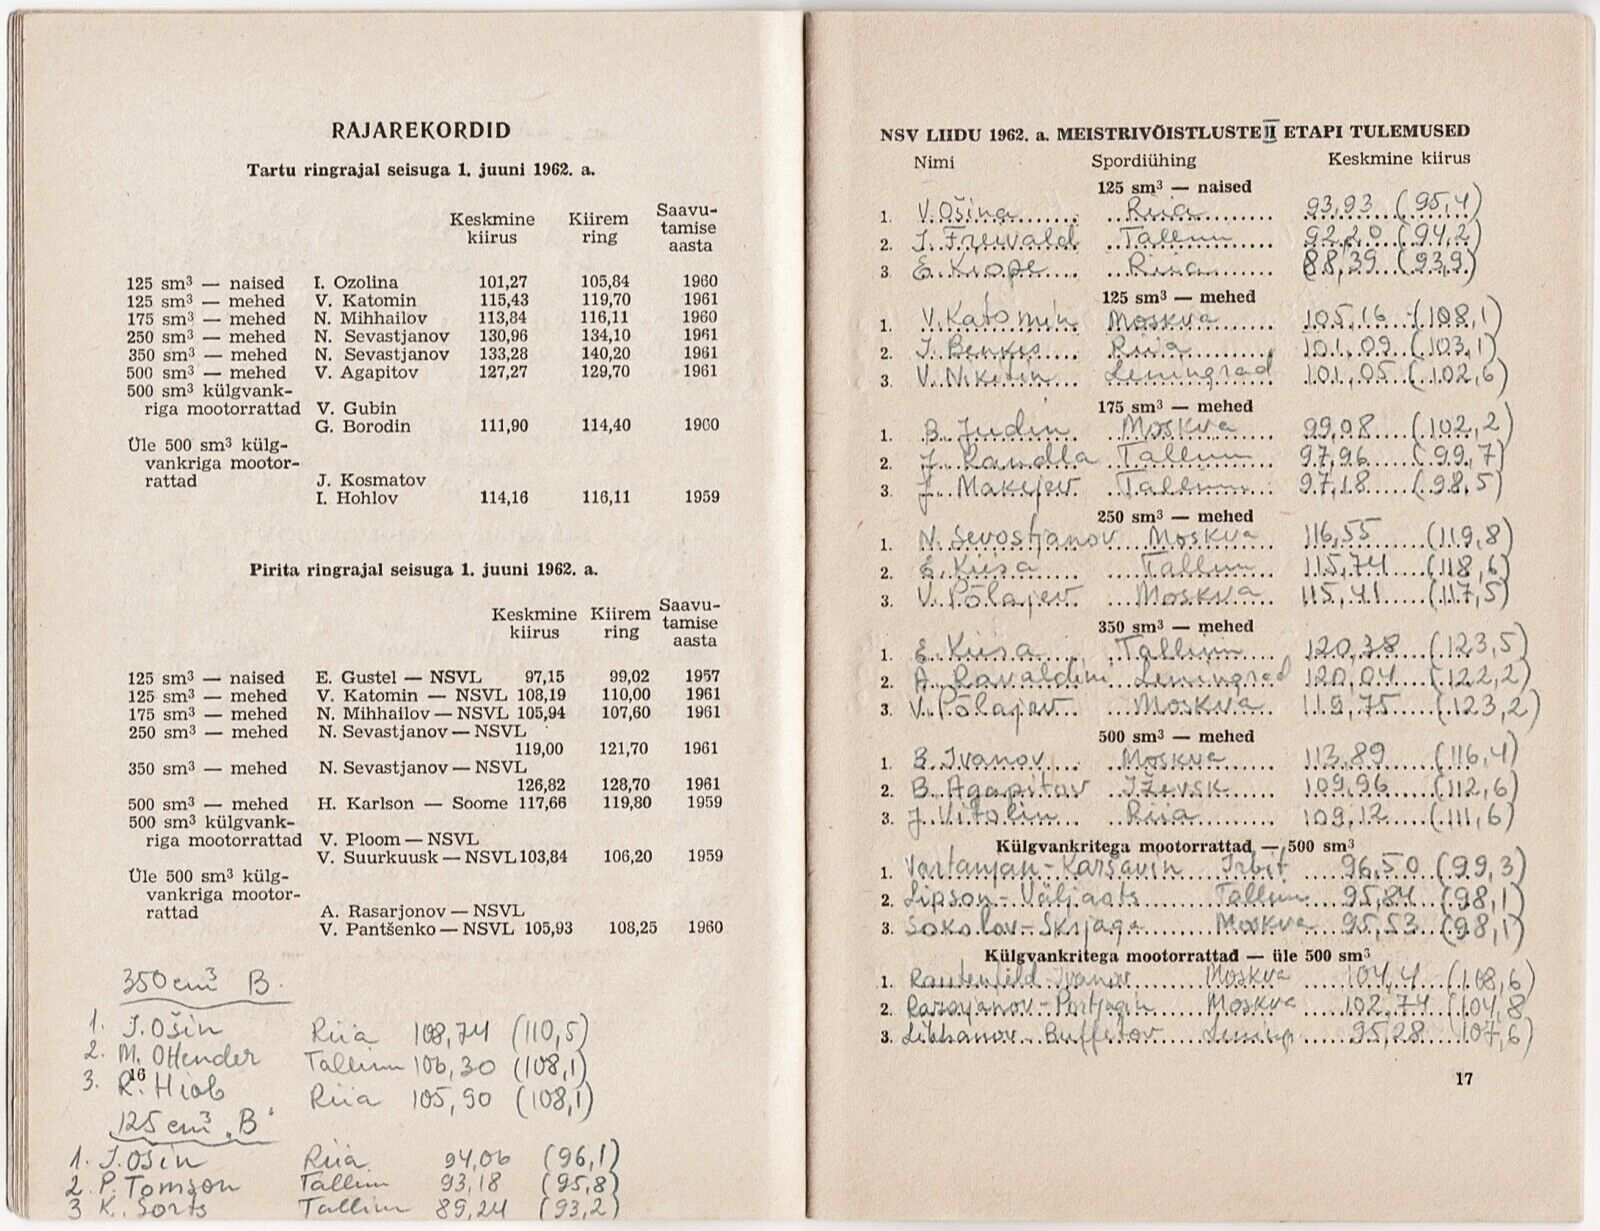 RAJAREKORDID
Tartu ringrajal seisuga 1. juuni 1962. a.
Keskmine kiirus Kiirem ring Saavu-tamise aasta
125 sm³ — naised I. Ozolina 101,27 105,84 1960
125 sm³ — mehed V. Katomin 115,43 119,70 1961
175 sm³ — mehed N. Mihhailov 113,84 116,11 1960
250 sm³ — mehed N. Sevastjanov 130,96 134,10 1961
350 sm³ — mehed N. Sevastjanov 133,28 140,20 1961
500 sm³ — mehed V. Agapitov 127,27 129,70 1961
500 sm³ külgvank-
riga mootorrattad V. Gubin
G. Borodin 111,90 114,40 1960
Üle 500 sm³ külg-
vankriga mootor-
rattad J. Kosmatov
I. Hohlov 114,16 116,11 1959
Pirita ringrajal seisuga 1. juuni 1962. a.
Keskmine kiirus Kiirem ring Saavu-tamise aasta
125 sm³ — naised E. Gustel — NSVL 97,15 99,02 1957
125 sm³ — mehed V. Katomin — NSVL 108,19 110,00 1961
175 sm³ — mehed N. Mihhailov — NSVL 105,94 107,60 1961
250 sm³ — mehed N. Sevastjanov — NSVL
119,00 121,70 1961
350 sm³ — mehed N. Sevastjanov — NSVL
126,82 128,70 1961
500 sm³ — mehed H. Karlson — Soome 117,66 119,80 1959
500 sm³ külgvank-
riga mootorrattad V. Ploom — NSVL
V. Suurkuusk — NSVL 103,84 106,20 1959
Üle 500 sm³ külg-
vankriga mootor-
rattad A. Rasarjonov — NSVL
V. Pantšenko — NSVL 105,93 108,25 1960
350 cm³ B.
1. J. Ošin Riia 108,74 (110,5)
2. M. Ottender Tallinn 106,30 (108,1)
16
3. R. Hiob Riia 105,90 (108,1)
125 cm³ "B"
1. J. Ošin Riia 94,06 (96,1)
2. P. Tomson Tallinn 93,18 (95,8)
3 K. Sorts Tallinn 89,24 (93,2)
NSV LIIDU 1962. a. MEISTRIVÕISTLUSTE II ETAPI TULEMUSED
Nimi Spordiühing Keskmine kiirus
125 sm³ — naised
1. V. Ošina Riia 93,93 (95,4)
2. J. Freivald Tallinn 92,20 (94,2)
3. E. Kiope Riia 88,39 (93,9)
125 sm³ — mehed
1. V. Katomin Moskva 105,16 (108,1)
2. J. Benkis Riia 101,09 (103,1)
3. V. Nikitin Leningrad 101,05 (102,6)
175 sm³ — mehed
1. B. Judin Moskva 99,08 (102,2)
2. J. Randla Tallinn 97,96 (99,7)
3. J. Makejev Tallinn 97,18 (98,5)
250 sm³ — mehed
1. N. Sevostjanov Moskva 116,55 (119,8)
2. E. Kiisa Tallinn 115,74 (118,6)
3. V. Põlajev Moskva 115,41 (117,5)
350 sm³ — mehed
1. E. Kiisa Tallinn 120,38 (123,5)
2. A. Ravaldini Leningrad 120,04 (122,2)
3. V. Põlajev Moskva 119,75 (123,2)
500 sm³ — mehed
1. B. Ivanov Moskva 113,89 (116,4)
2. B. Agapitov Iževsk 109,96 (112,6)
3. J. Vitolin Riia 109,12 (111,6)
Külgvankritega mootorrattad — 500 sm³
1. Vartanjan - Karšavin Irbit 96,50 (99,3)
2. Lipson - Väljaots Tallinn 95,84 (98,1)
3. Sokolov - Skrjaga Moskva 95,53 (98,1)
Külgvankritega mootorrattad — üle 500 sm³
1. Rautenfeld - Ivanov Moskva 104,4 (108,6)
2. Rasarjanov - Portjagin Moskva 102,74 (104,8
3. Lihhanov - Bufferov Lening 95,28 107,6)
17